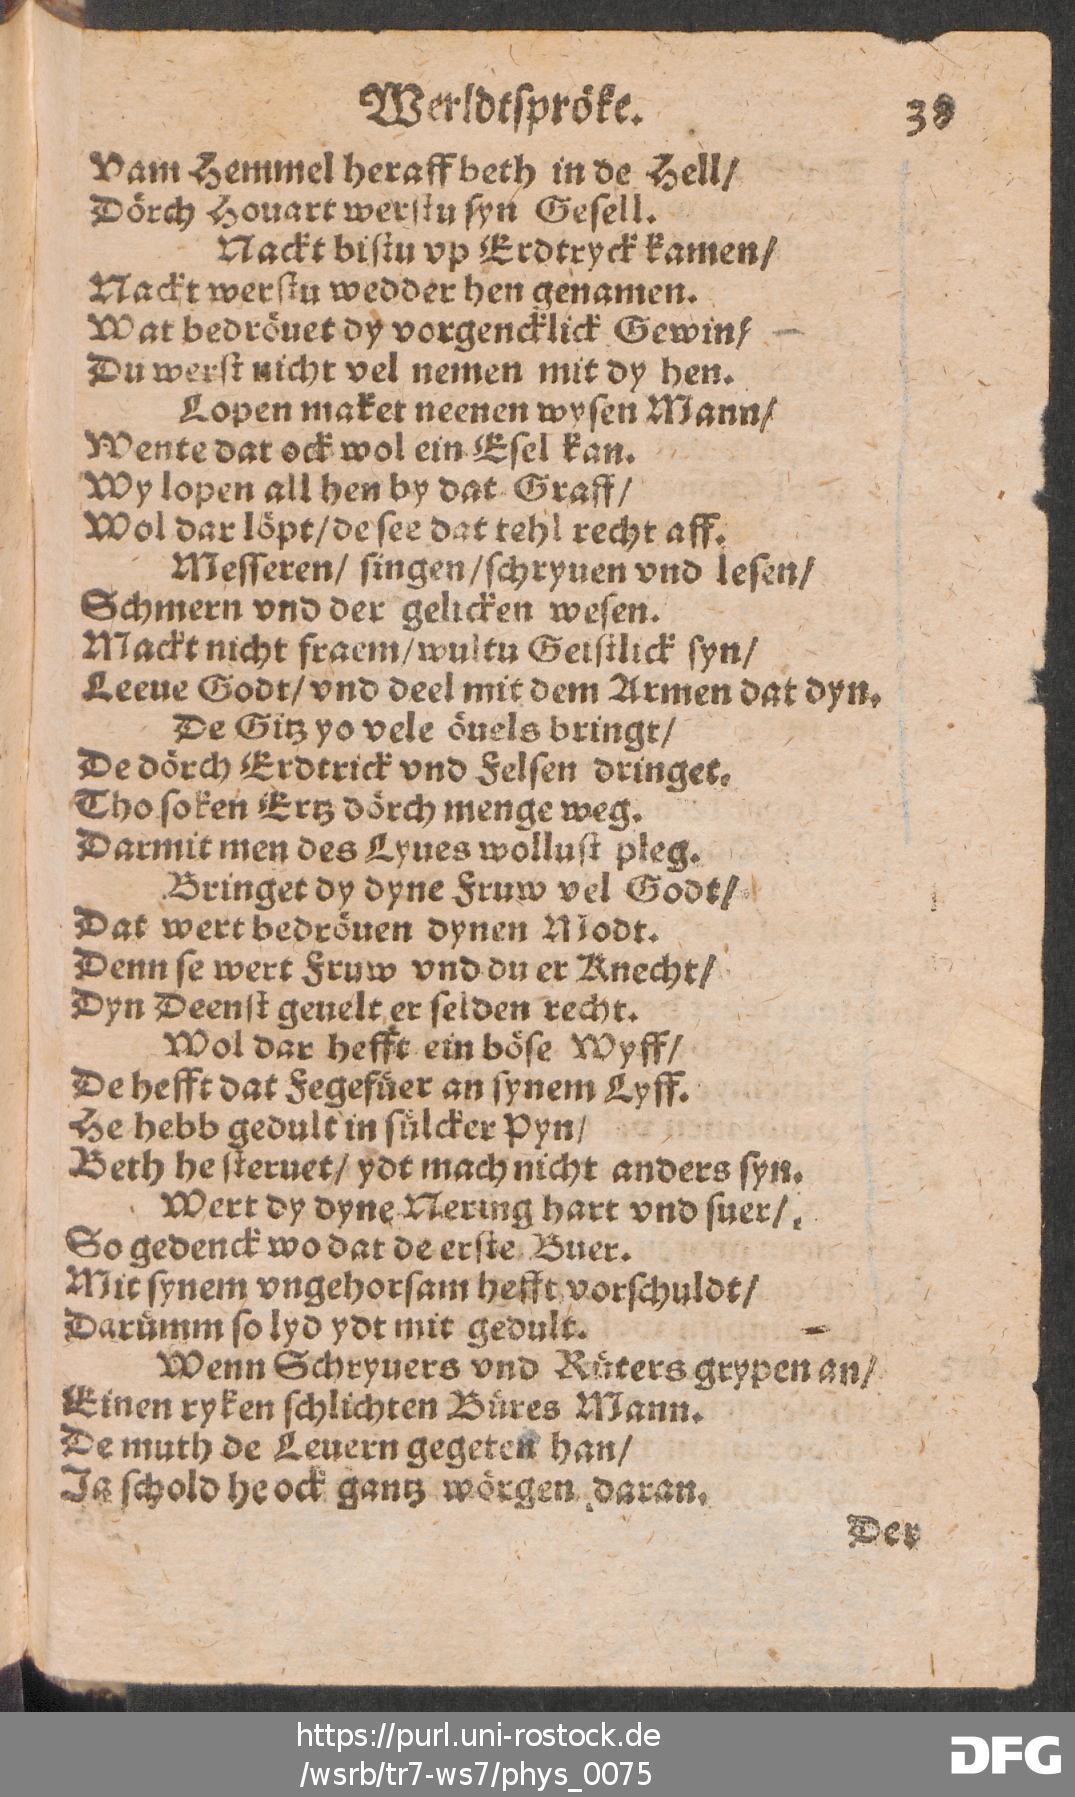 Werldtspröke. 38
Vam Hemmel heraff beth in de Hell/
Dörch Houart werstu syn Gesell.
Nackt bistu vp Erdtryck kamen/
Nackt werstu wedder hen genamen.
Wat bedröuet dy vorgencklick Gewin/
Du werst nicht vel nemen mit dy hen.
Lopen maket neenen wysen Mann/
Wente dat ock wol ein Esel kan.
Wy lopen all hen by dat Graff/
Wol dar löpt/ de see dat tehl recht aff.
Messeren/ singen/ schryuen vnd lesen/
Schmern vnd der gelicken wesen.
Mackt nicht fraem/ wultu Geistlick syn/
Leeue Godt/ vnd deel mit dem Armen dat dyn.
De Gitz yo vele öuels bringt/
De dörch Erdtrick vnd Felsen dringet.
Tho soken Ertz dörch menge weg.
Darmit men des Lyues wollust pleg.
Bringet dy dyne Fruw vel Godt/
Dat wert bedröuen dynen Modt.
Denn se wert Fruw vnd du er Knecht/
Dyn Deenst geuelt er selden recht.
Wol dar hefft ein böse Wyff/
De hefft dat Fegefüer an synem Lyff.
He hebb gedult in sülcker Pyn/
Beth he steruet/ ydt mach nicht anders syn.
Wert dy dyne Nering hart vnd suer/
So gedenck wo dat de erste Buer.
Mit synem vngehorsam hefft vorschuldt/
Darümm so lyd ydt mit gedult.
Wenn Schryuers vnd Rüters grypen an/
Einen ryken schlichten Büres Mann.
De muth de Leuern gegeten han/
Ja schold he ock gantz wörgen daran.
Der
https://purl.uni-rostock.de
/wsrb/tr7-ws7/phys_0075
DFG